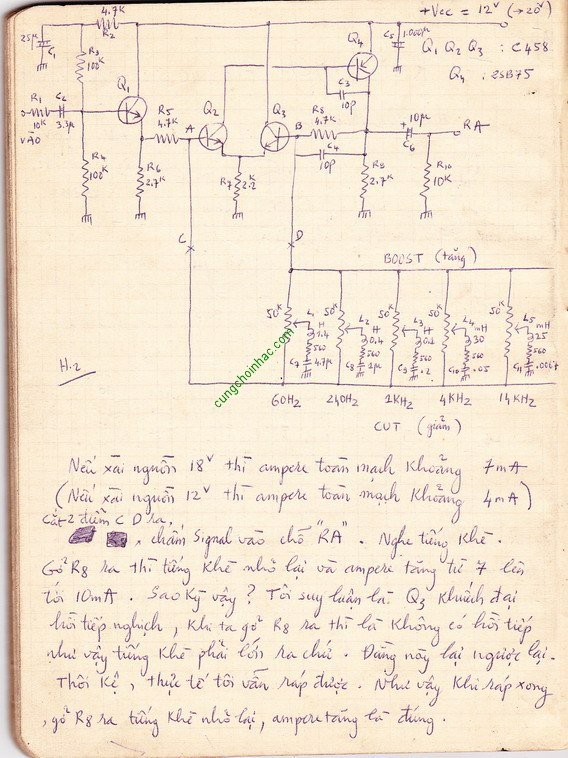 +Vcc = 12V (→20V)
4.7K
R2
25µ
C1
R3
100K
Q1
Q4
C5
1.000µ
Q1 Q2 Q3 : C458
Q4 . 2SB75
R1
10K
C2
3.3µ
VÀO
R5
4.7K
A
Q2
Q3
B
R8
4.7K
C3
10p
C4
10p
10µ
C6
RA
R4
100K
R6
2.7K
R7
2.2K
R9
2.7K
R10
10K
C
D
BOOST (tăng)
50K
50K
50K
50K
50K
L1
H
1.4
560
C7
4.7µ
L2
H
0.4
560
C8
2µ
L3
H
560
C9
.2
L4
mH
30
560
C10
.05
L5
mH
25
560
C11
.0067
cungchoinhac.com
H.2
60Hz 240Hz 1KHz 4KHz 14KHz
CUT (giảm)
Nếu xài nguồn 18V thì ampere toàn mạch khoảng 7mA
(Nếu xài nguồn 12V thì ampere toàn mạch khoảng 4mA)
cắt 2 điểm C D ra,
chấm Signal vào chỗ "RA". Nghe tiếng khè.
Gỡ R8 ra thì tiếng khè nhỏ lại và ampere tăng từ 7 lên
tới 10mA. Sao kỳ vậy? Tôi suy luận là Q3 khuếch đại
hồi tiếp nghịch, khi ta gỡ R8 ra thì là không có hồi tiếp
như vậy tiếng khè phải lớn ra chứ. Đằng này lại ngược lại.
Thôi kệ, thực tế tôi vẫn ráp được. Như vậy khi ráp xong
, gỡ R8 ra tiếng khè nhỏ lại, ampere tăng là đúng.